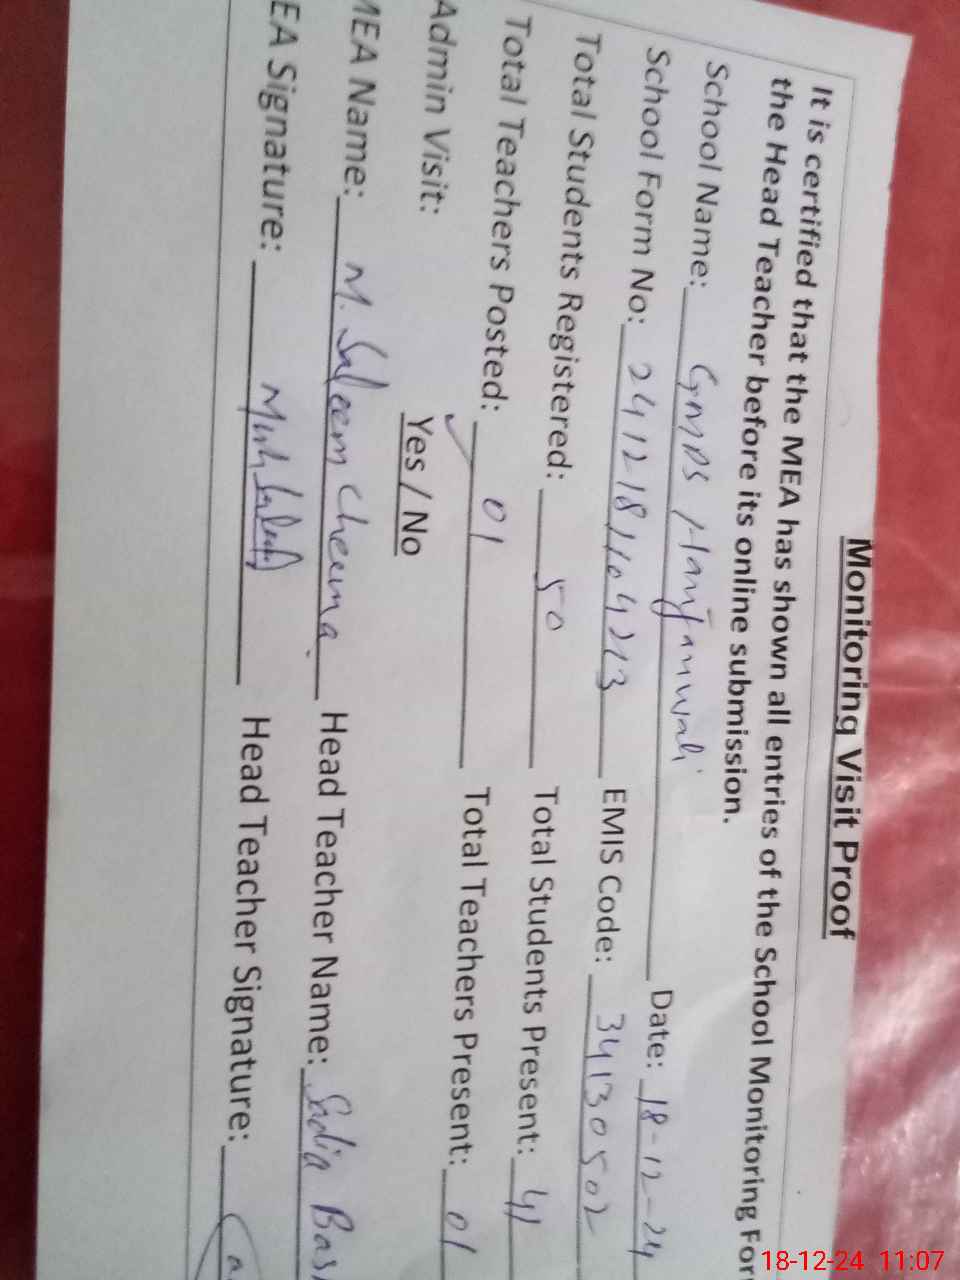 Monitoring Visit Proof
It is certified that the MEA has shown all entries of the School Monitoring For
the Head Teacher before its online submission.
School Name: GMPS Hamjanwali Date: 18-12-24
School Form No: 2412181104213 EMIS Code: 34130502
Total Students Registered: 50 Total Students Present: 41
Total Teachers Posted: 01 Total Teachers Present: 01
Admin Visit: Yes / No
MEA Name: M. Saleem Cheema Head Teacher Name: Sadia Bas
EA Signature: Muh Saleem Head Teacher Signature:
18-12-24 11:07